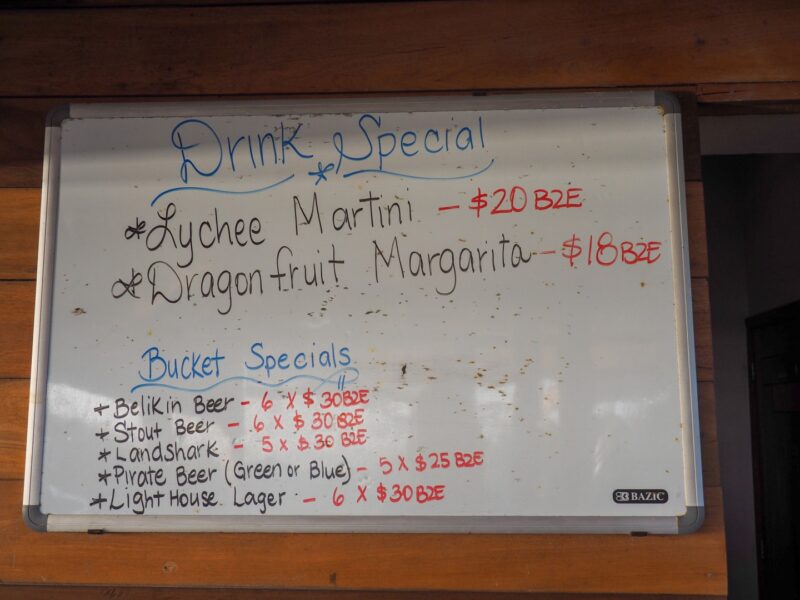 Drink * Special
*Lychee Martini - $20 BZE
*Dragonfruit Margarita - $18 BZE
Bucket Specials
*Belikin Beer - 6 X $30 BZE
*Stout Beer - 6 X $30 BZE
*Landshark - 5 X $30 BZE
*Pirate Beer (Green or Blue) - 5 X $25 BZE
*LightHouse Lager - 6 X $30 BZE
BAZIC